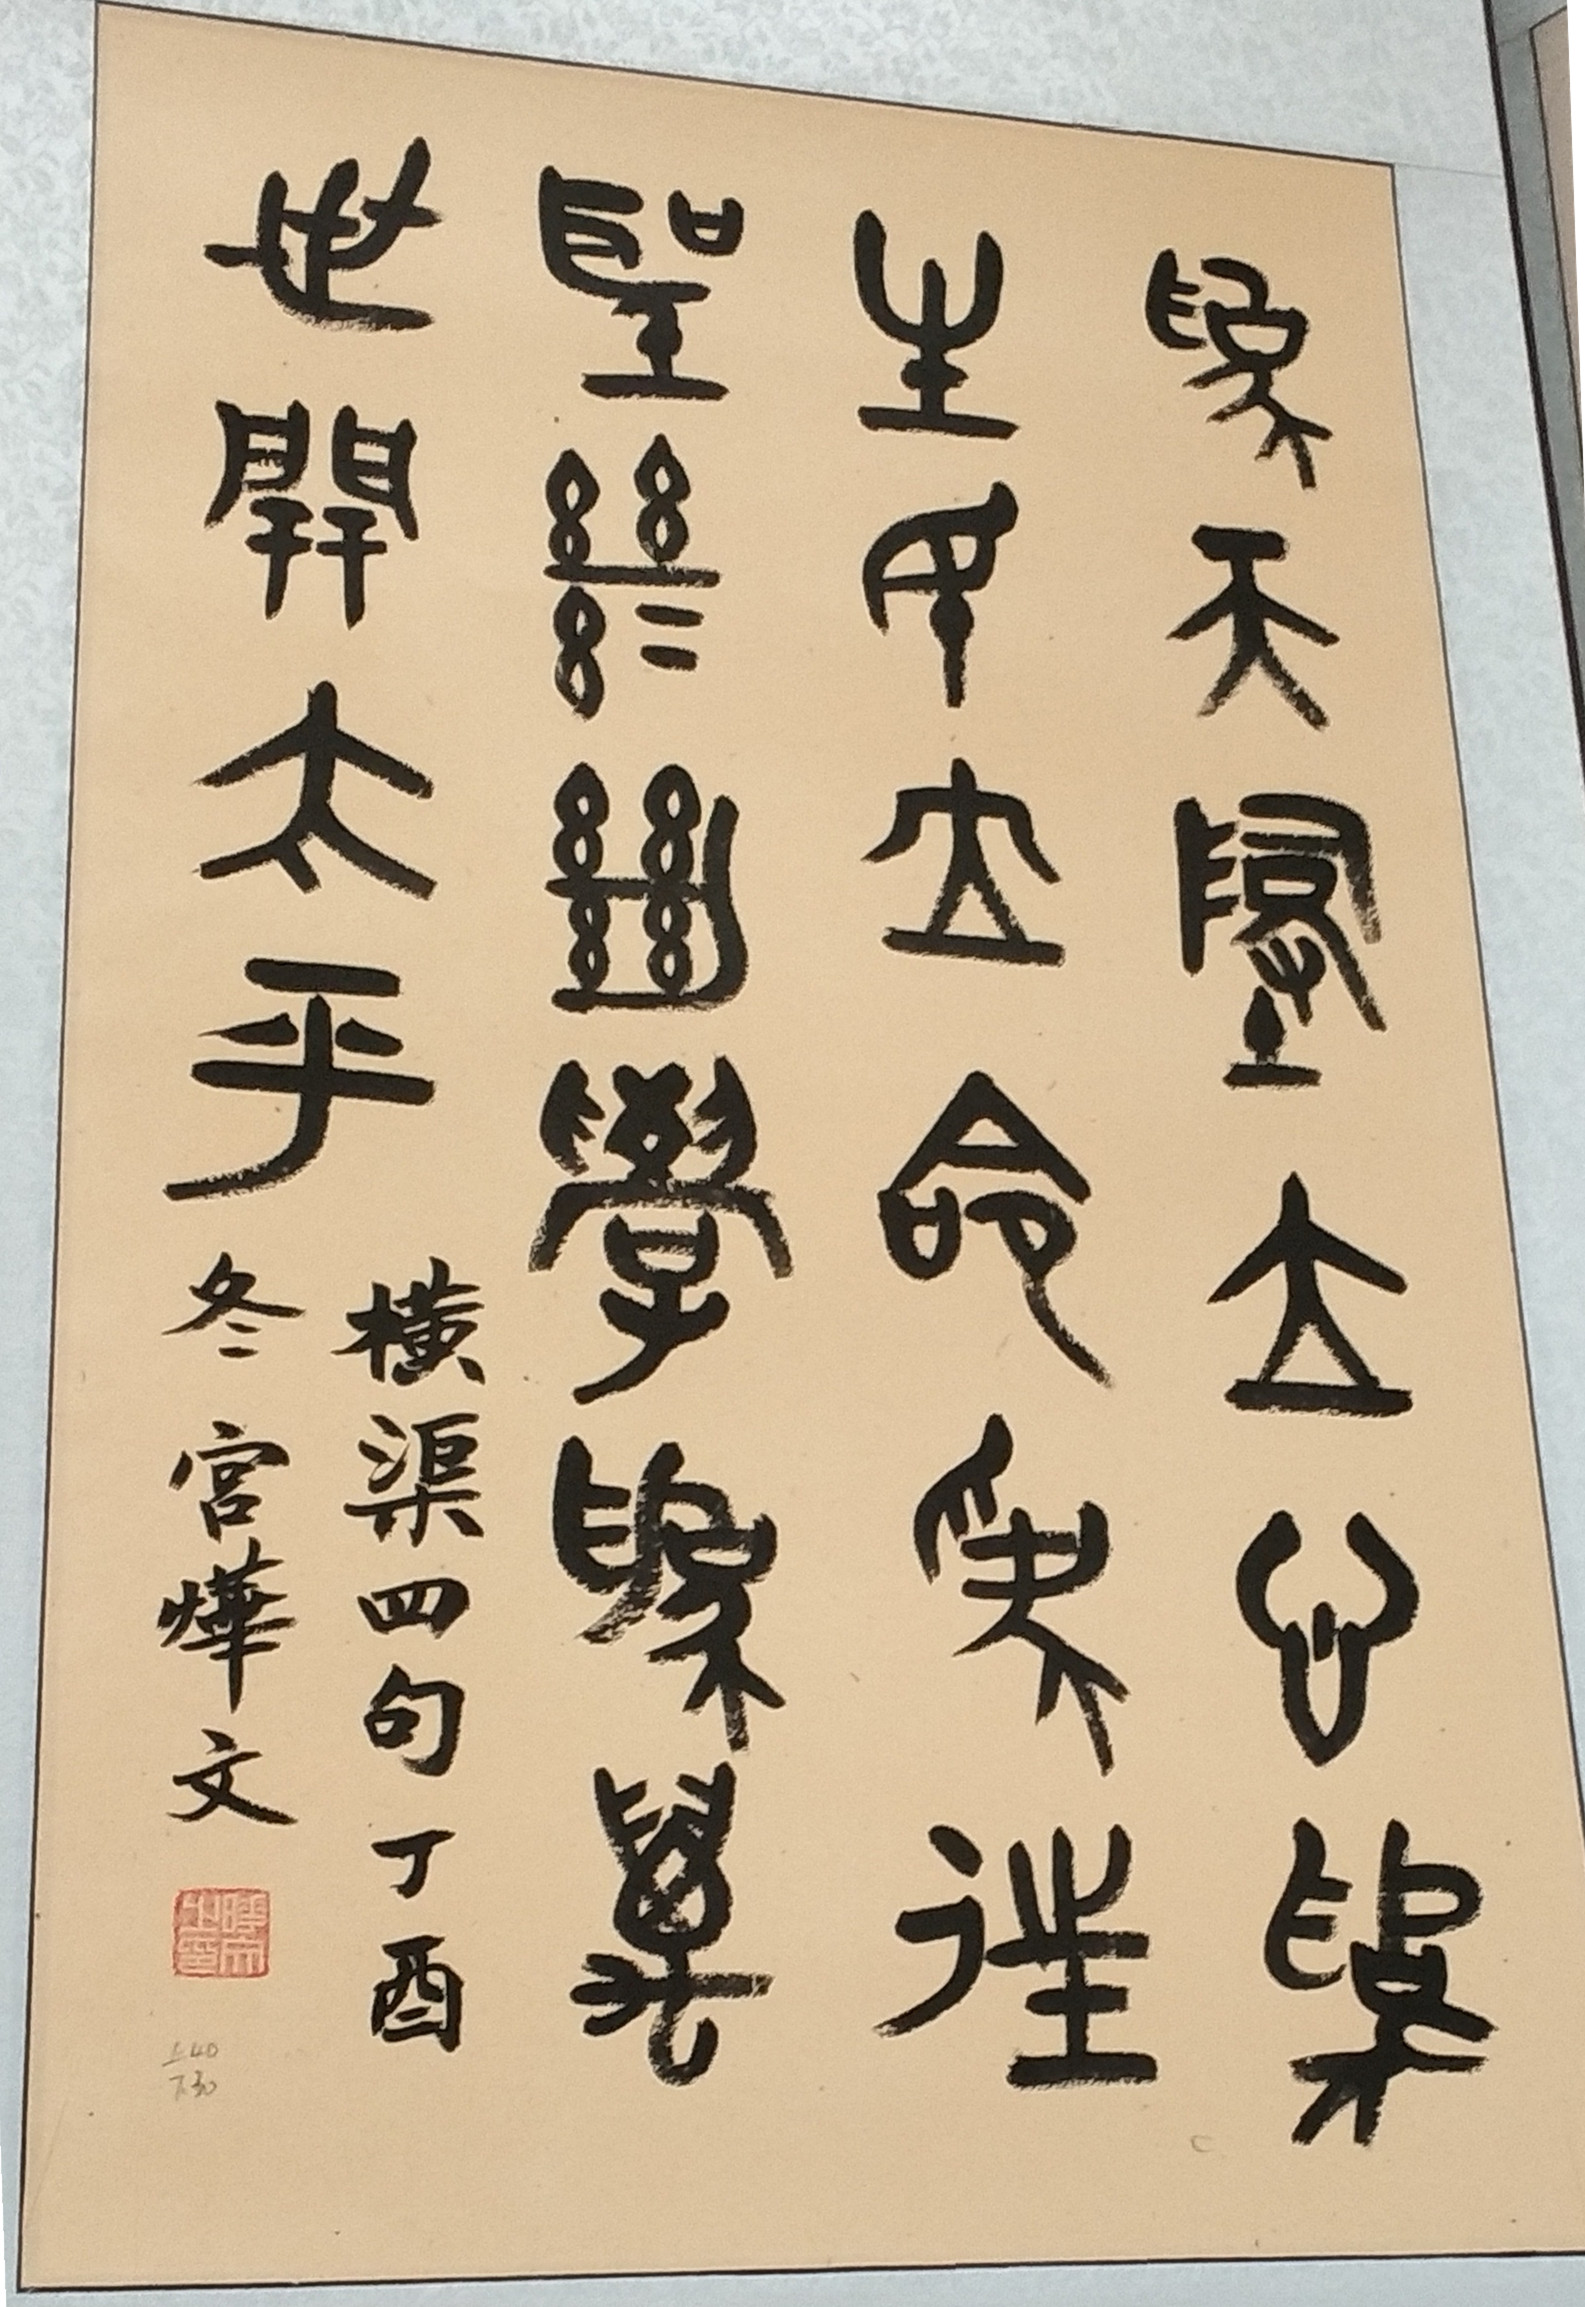 為天地立心為
生民立命為往
聖繼絕學為萬
世開太平
橫渠四句丁酉
冬宮燁文
燁文之印
上40
下30